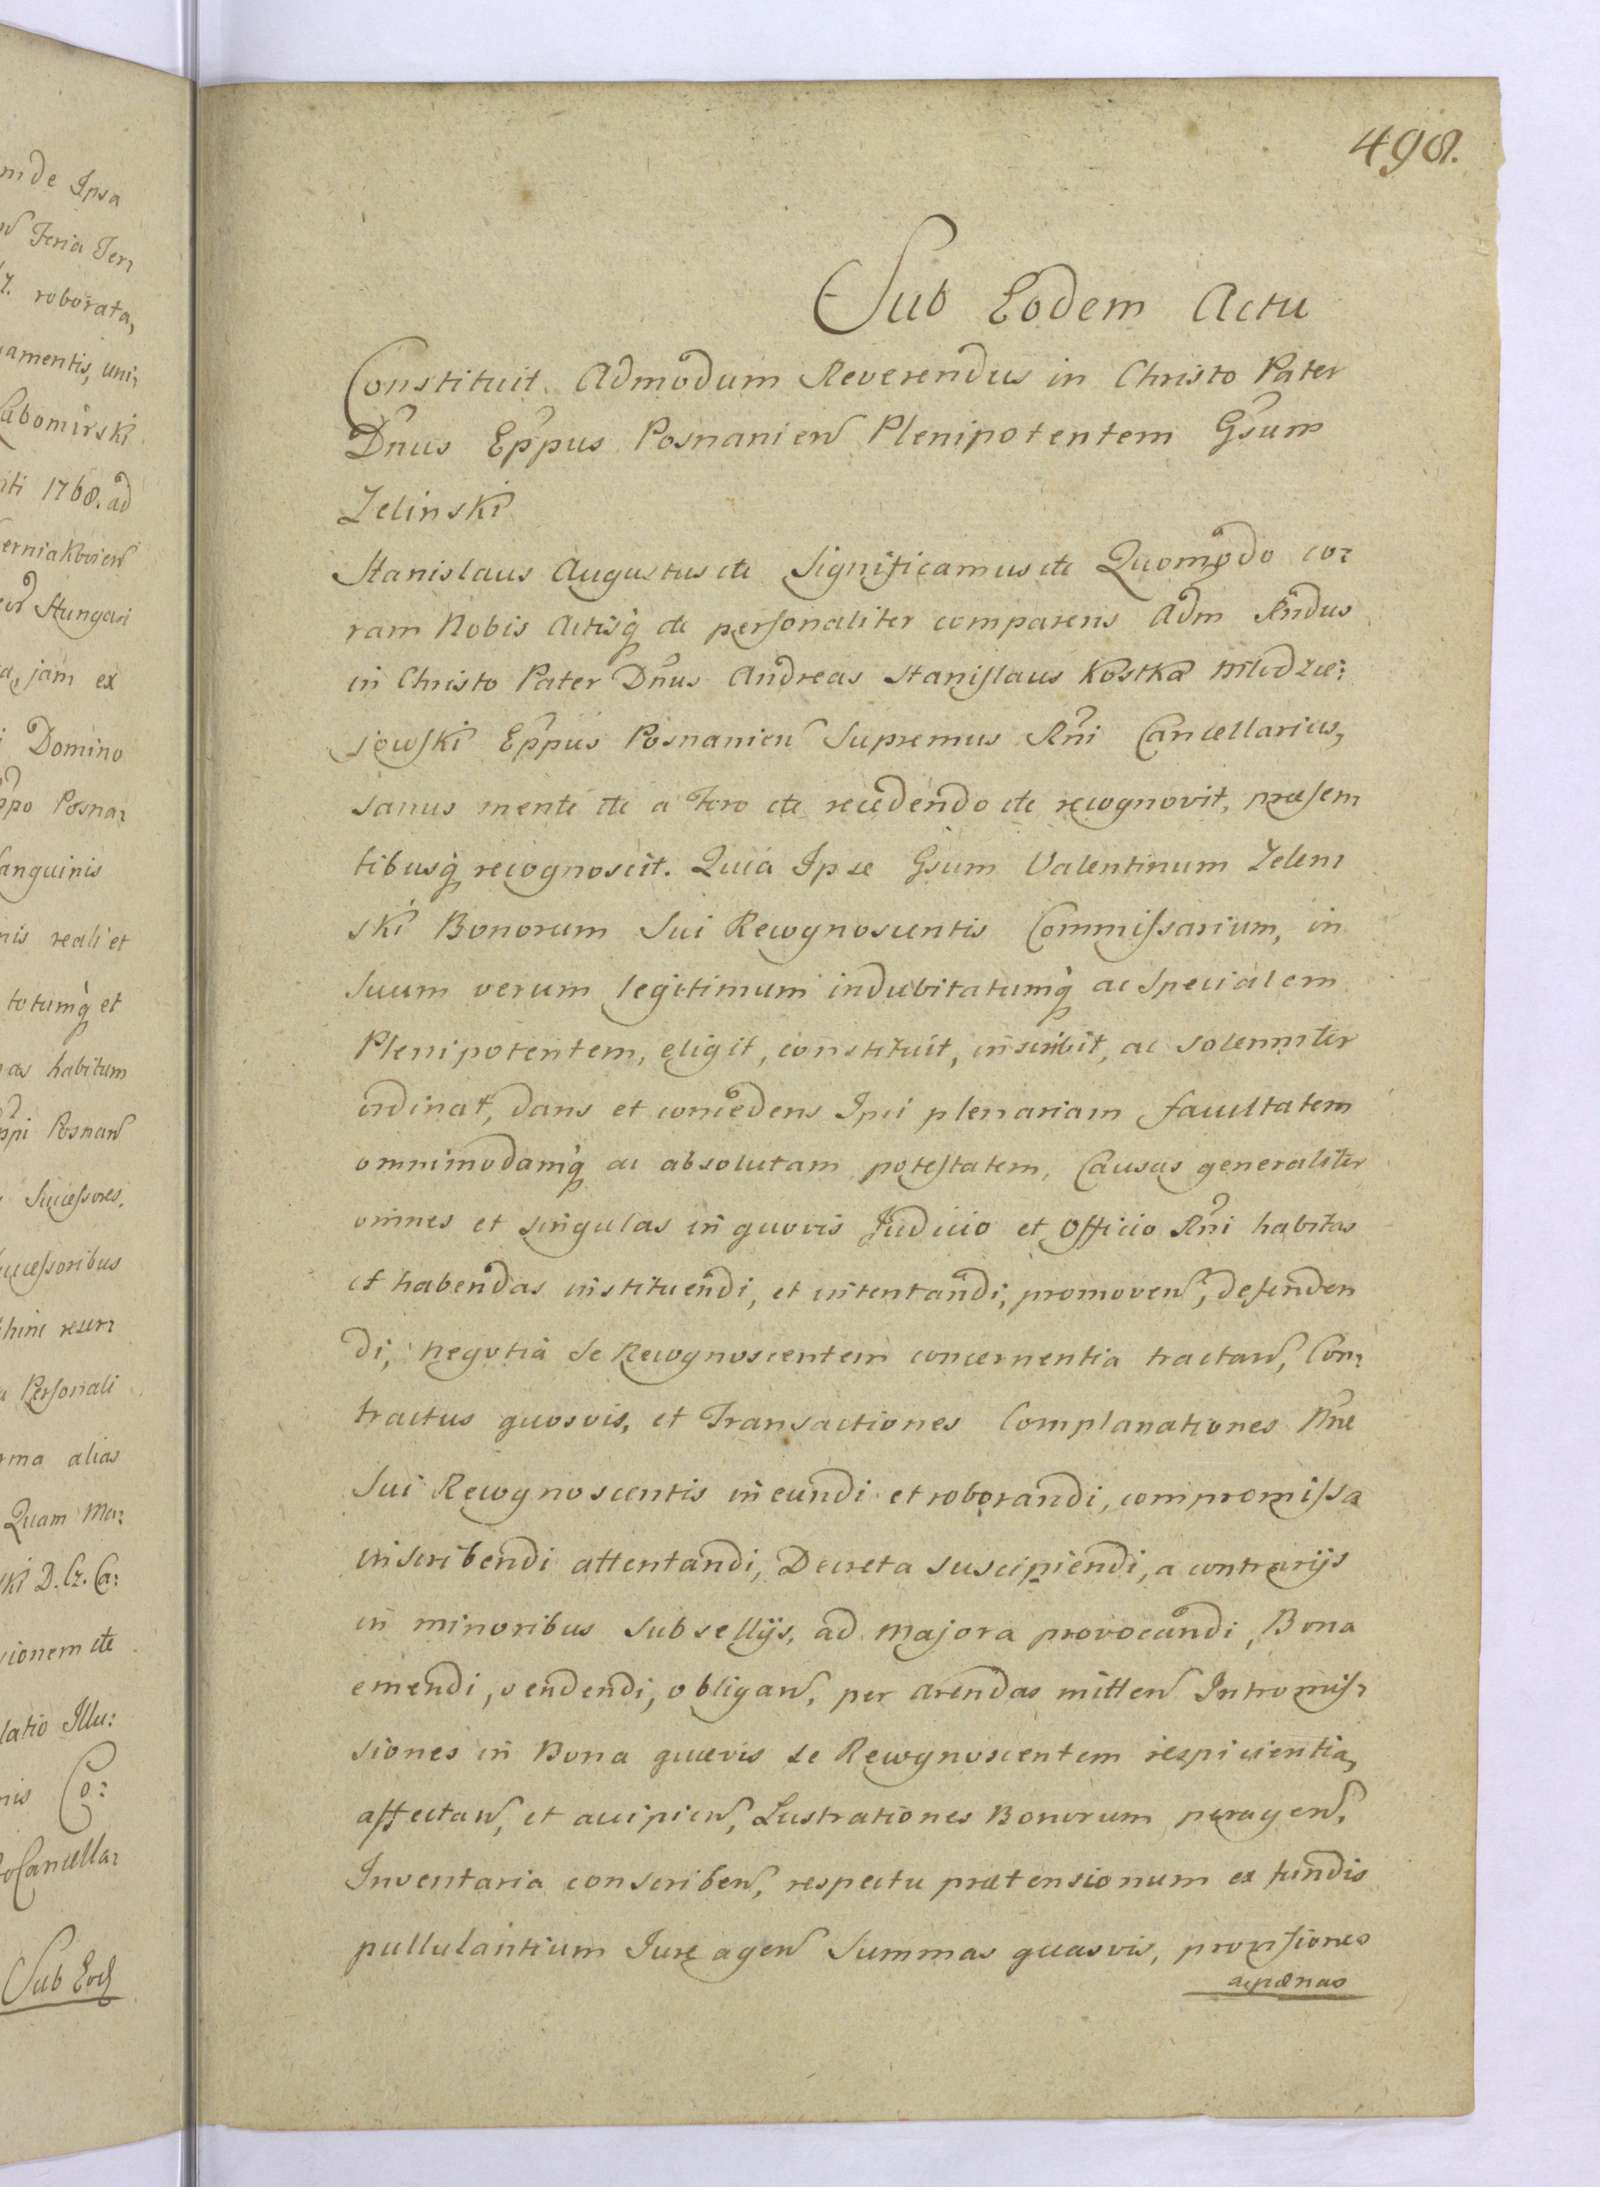 498.
Sub Eodem Actu
Constituit Admodum Reverendus in Christo Pater
Dnus Eppus Posnanien Plenipotentem Gsum
Zelinski
Stanislaus Augustus etc Significamus etc Quomodo co:
ram Nobis Actisq etc personaliter comparens Adm Rndus
in Christo Pater Dnus Andreas Stanislaus Kostka Młodzie:
jowski Eppus Posnanien Supremus Rni Cancellarius,
sanus mente etc a Foro etc recedendo etc recognovit, præsen
tibusq recognoscit. Quia Ipse Gsum Valentinum Zelen
ski Bonorum Sui Recognoscentis Commissarium, in
suum verum legitimum indubitatumq ac specialem
Plenipotentem, eligit, constituit, inscribit, ac solenniter
ordinat, dans et concedens Ipsi plenariam facultatem
omnimodamq ac absolutam potestatem, Causas generaliter
omnes et singulas in quovis Judicio et Officio Rni habitas
et habendas instituendi, et intentandi, promoven, defenden
di, negotia se Recognoscentem concernentia tractan, Con:
tractus quosvis, et Transactiones Complanationes Nne
Sui Recognoscentis ineundi et roborandi, compromissa
inscribendi attentandi, Decreta suscipiendi, a contrarijs
in minoribus subsellijs, ad majora provocandi, Bona
emendi, vendendi, obligan, per arendas mitten Intromis:
siones in Bona quævis se Recognoscentem respicientia,
affectan, et accipien, Lustrationes Bonorum peragen,
Inventaria conscriben, respectu prætensionum ex fundis
pullulantium Jure agen Summas quasvis, provisiones
ac pænas
Ipsa
Feria Ter:
roborata,
amentis, uni:
Labomirski
1768. ad
erniakovien
Hungari
jam ex
Domino
ppo Posna:
Sanguinis
nis reali et
totumq et
habitum
ppi Posnan
Successores.
uccessoribus
Personali
rma alias
Quam Ma:
ski D. Cz. Ca:
sionem etc
latio Illu:
nis Co:
Cancella:
Sub Eod